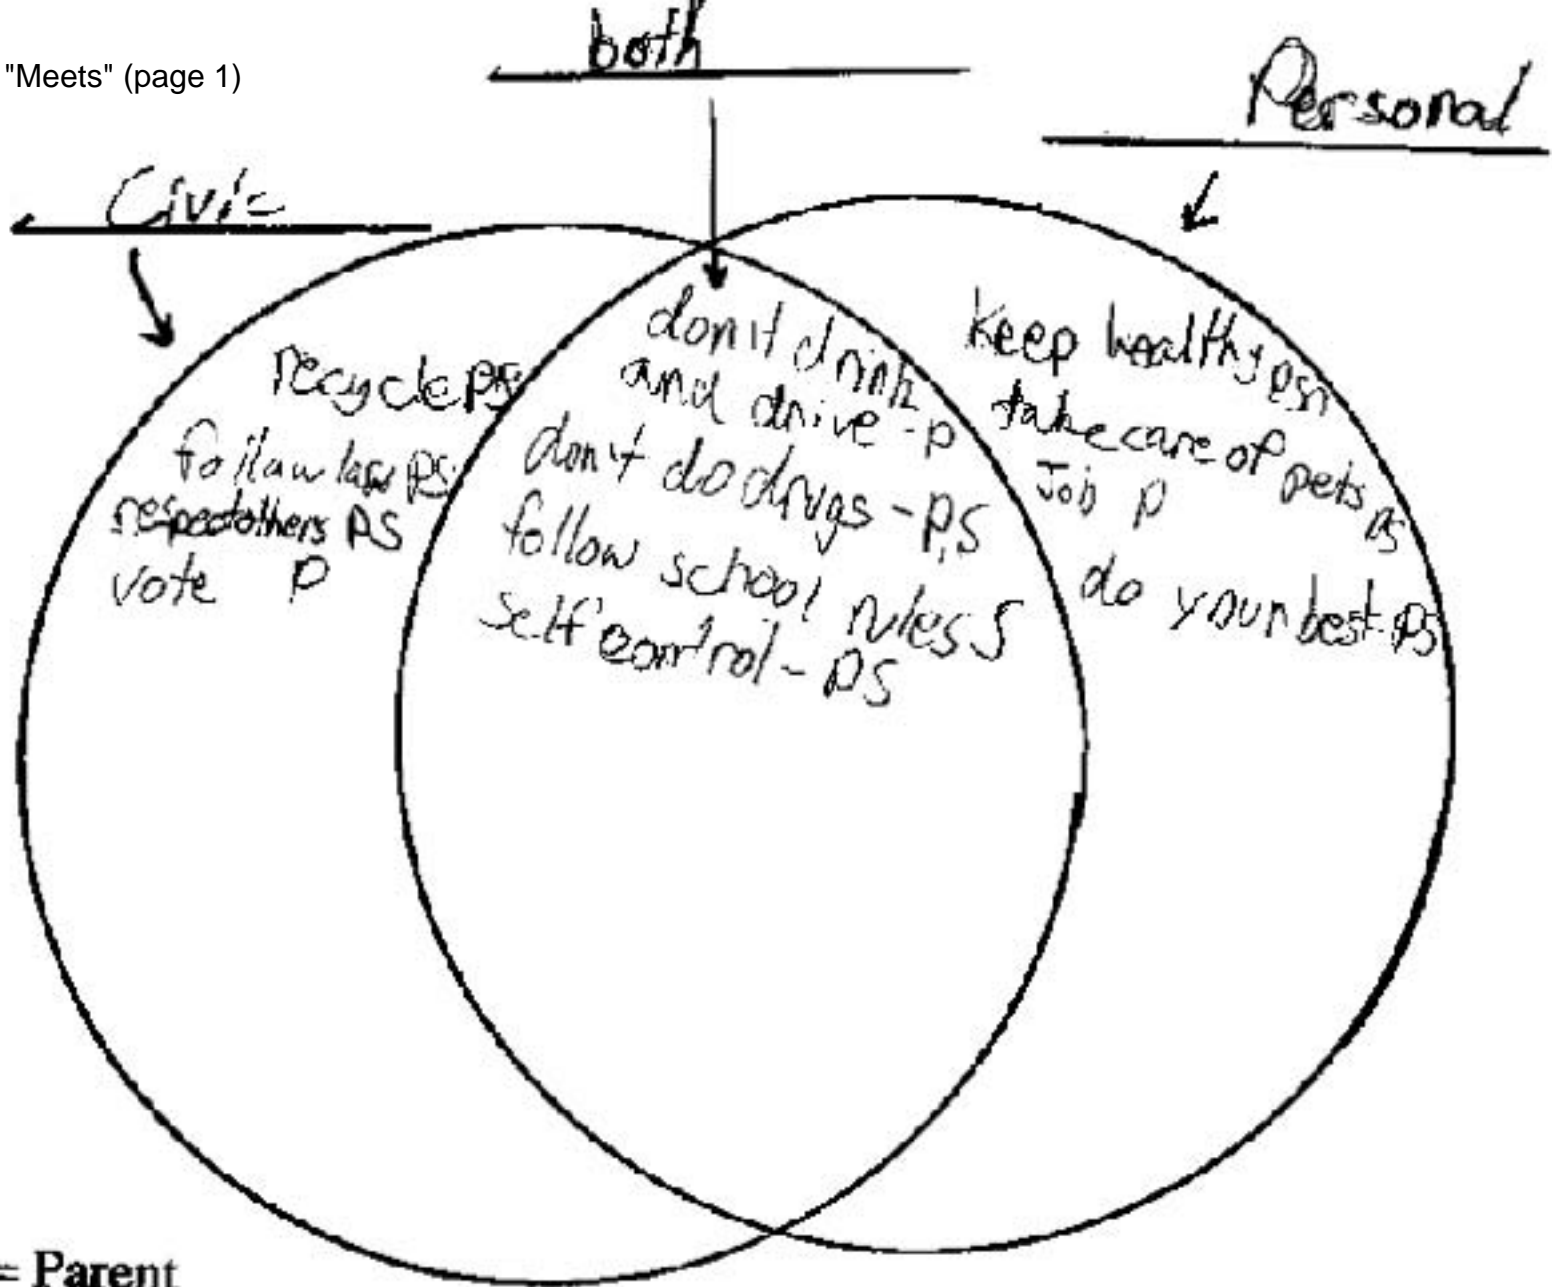 "Meets" (page 1)
both
Personal
Civic
recycle PS
follow law PS
respect others PS
vote P
don't drink
and drive - P
don't do drugs - P,S
follow school rules S
self control - PS
Keep healthy PS
take care of pets PS
Job P
do your best PS
= Parent